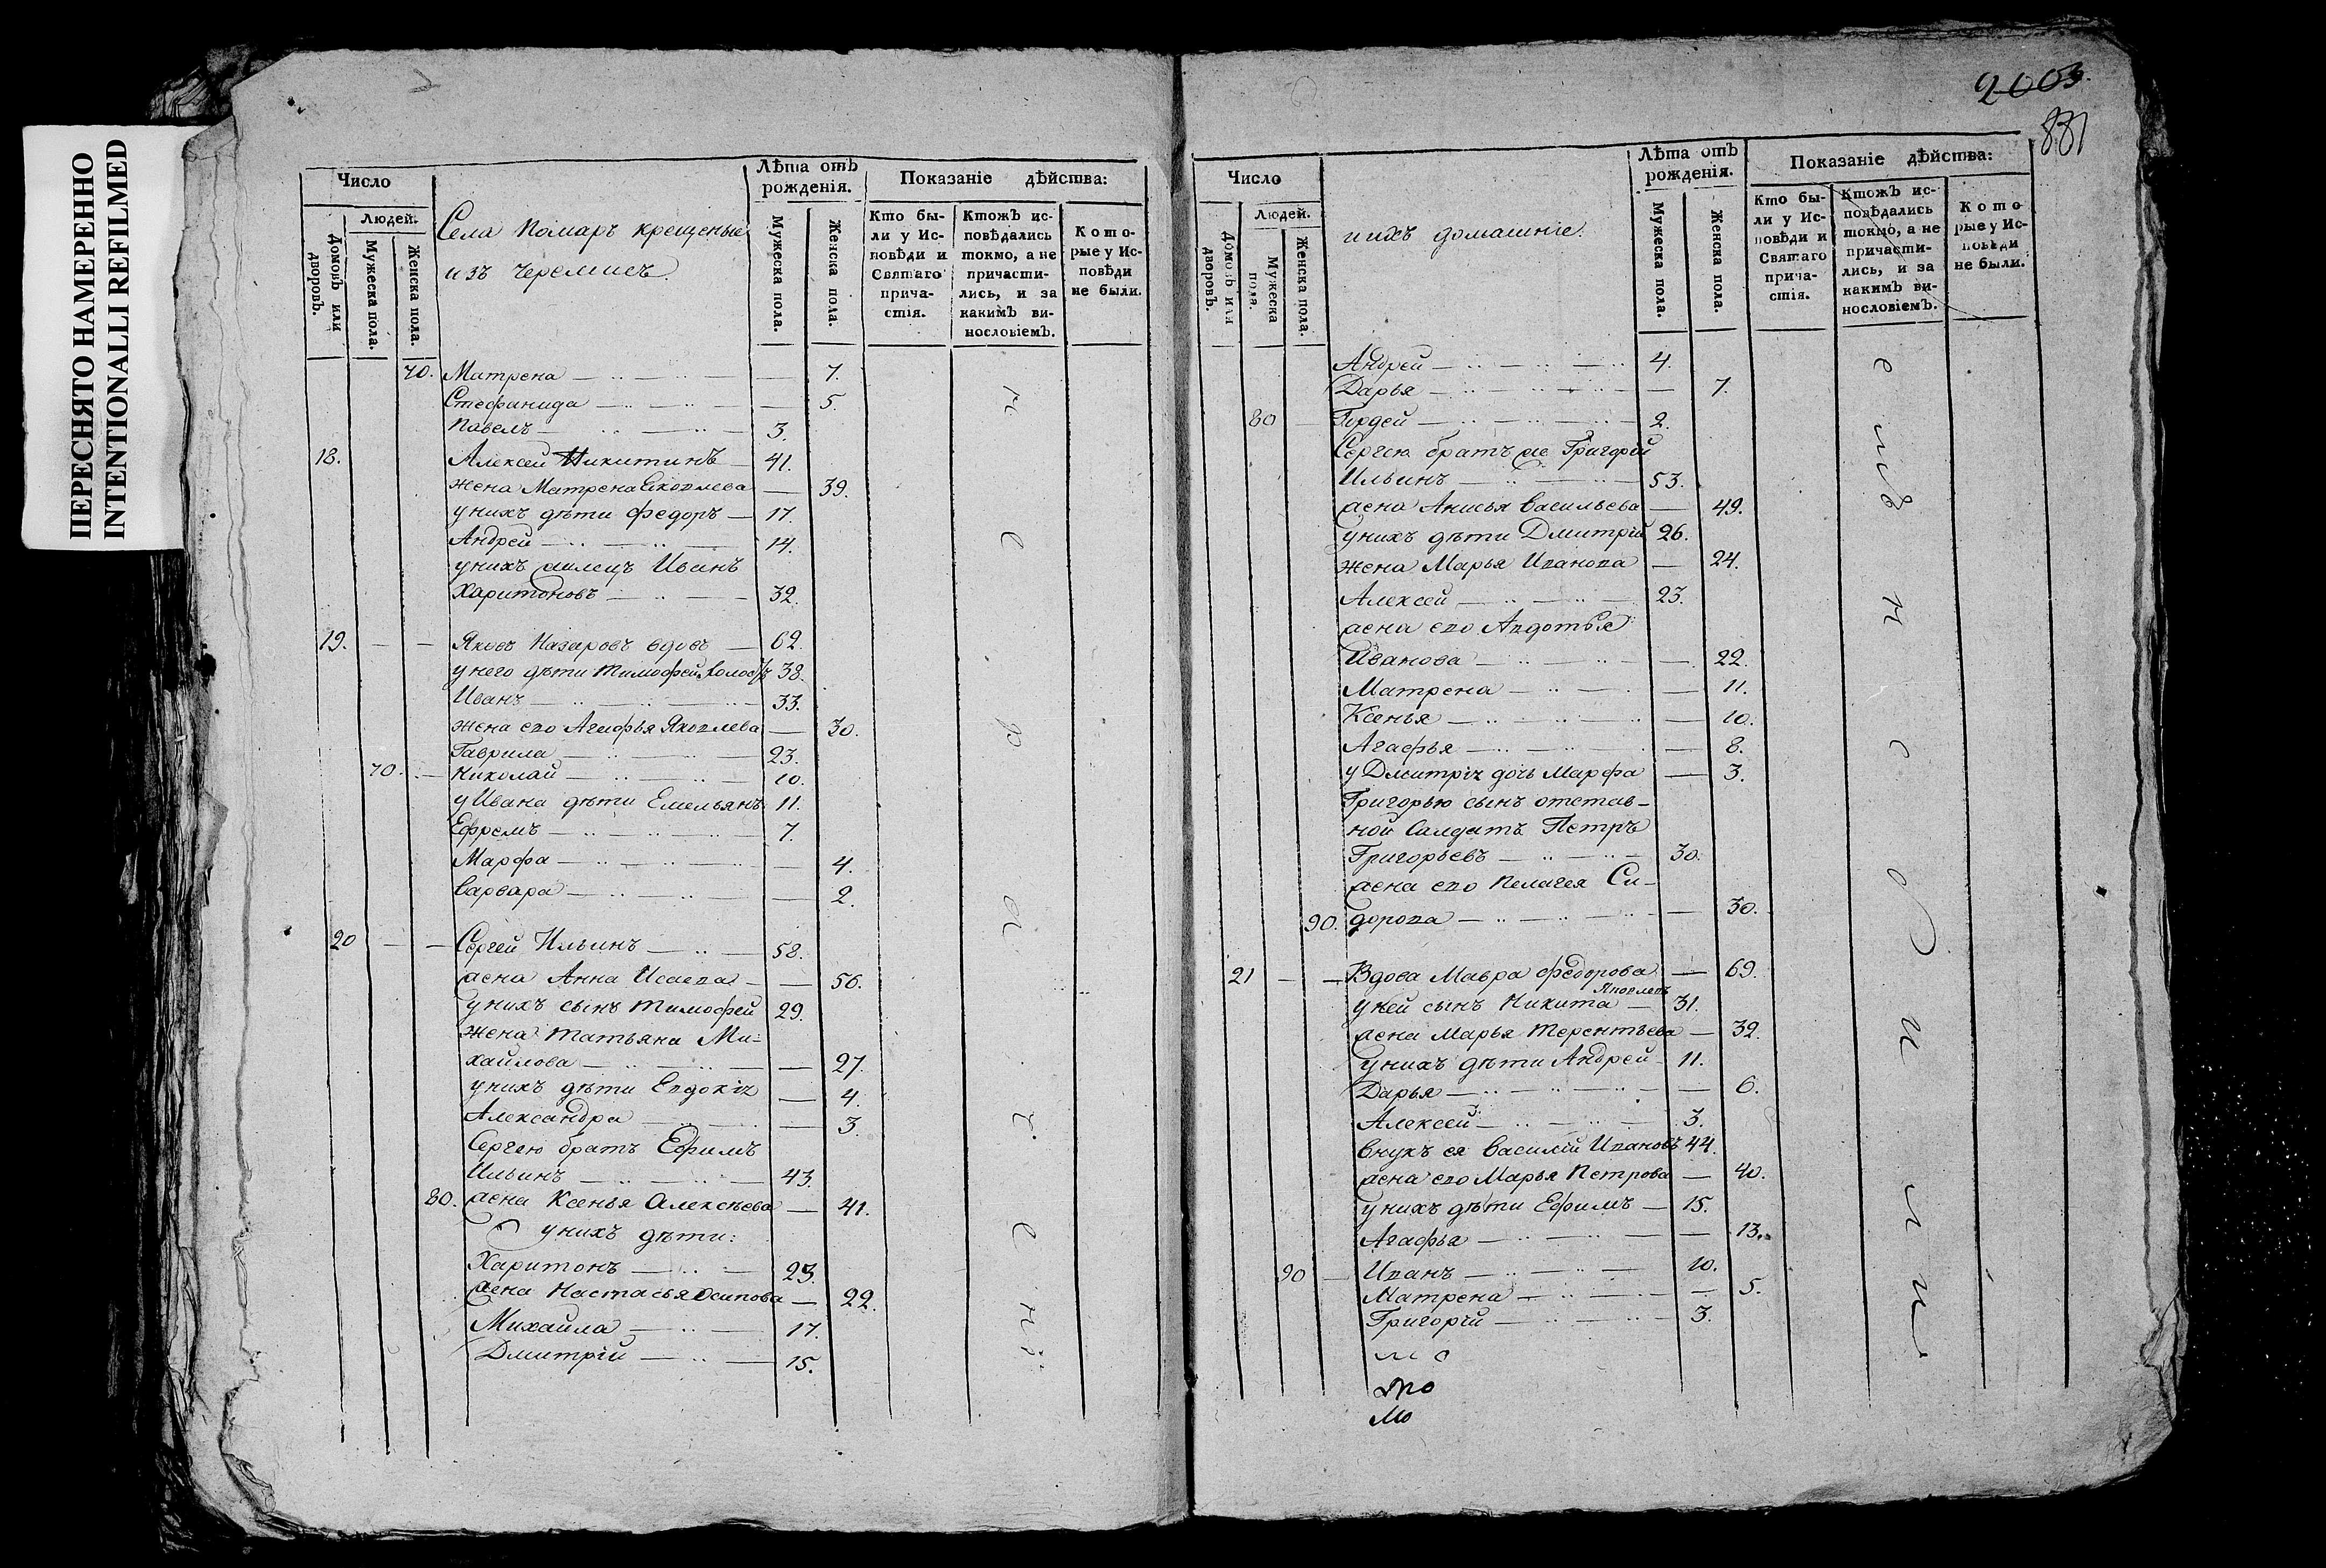 ПЕРЕСНЯТО НАМЕРЕННО
INTENTIONALLI REFILMED
Число
Людей.
Домовъ или дворовъ.
Мужеска пола.
Женска пола.
Села Помаръ крещеные
изъ черемисъ.
Лѣта отъ рожденія.
Мужеска пола.
Женска пола.
Показаніе дѣйства:
Кто были у Исповѣди и Святаго причастія.
Ктожъ исповѣдались токмо, а не причастились, и за какимъ винословіемъ.
Которые у Исповѣди не были.
70. Матрена — 7.
Стефанида — 5.
Павелъ — 3.
18. Алексей Никитинъ — 41.
жена Матрена Яковлева — 39.
у нихъ дѣти Федоръ — 17.
Андрей — 14.
у нихъ Иванъ
Харитоновъ — 32.
19. — — Яковъ Назаровъ вдовъ — 62.
у него дѣти Тимофей холостъ 38.
Иванъ — 33.
жена его Агафья Яковлева — 30.
Гаврила — 23.
70. — Николай — 10.
у Ивана дѣти Емельянъ 11.
Ефремъ — 7.
Марфа — 4.
Варвара — 2.
20 — — Сергей Ильинъ — 58.
жена Анна Исаева — 56.
у нихъ сынъ Тимофей 29.
жена Татьяна Ми-
хайлова — 27.
у нихъ дѣти Евдокія — 4.
Александра — 3.
Сергею братъ Ефимъ
Ильинъ — 43.
80. жена Ксенья Алексѣева — 41.
у нихъ дѣти:
Харитонъ — 23.
жена Настасья Осипова — 22.
Михаила — 17.
Дмитрій — 15.
2003.
881
Число
Людей.
Домовъ или дворовъ.
Мужеска пола.
Женска пола.
и ихъ домашніе.
Лѣта отъ рожденія.
Мужеска пола.
Женска пола.
Показаніе дѣйства:
Кто были у Исповѣди и Святаго причастія.
Ктожъ исповѣдались токмо, а не причастились, и за какимъ винословіемъ.
Которые у Исповѣди не были.
Андрей — 4.
Дарья — 7.
80 — Гордей — 2.
Сергею братъ же Григорій
Ильинъ — 53.
жена Анисья Васильева — 49.
у нихъ дѣти Дмитрій 26.
жена Марья Иванова — 24.
Алексей — 23.
жена его Авдотья
Иванова — 22.
Матрена — 11.
Ксенья — 10.
Агафья — 8.
у Дмитрія дочь Марфа — 3.
Григорью сынъ отстав-
ной Салдатъ Петръ
Григорьевъ — 30.
жена его Пелагея Си-
90. дорова — 30.
21 — — Вдова Мавра Федорова — 69.
Яковлевъ
у ней сынъ Никита — 31.
жена Марья Терентьева — 32.
у нихъ дѣти Андрей — 11.
Дарья — 6.
Алексей — 3.
внукъ ея Василій Ивановъ 44.
жена его Марья Петрова — 40.
у нихъ дѣти Ефимъ — 15.
Агафья — 13.
90 — Иванъ — 10.
Матрена — 5.
Григорій — 3.